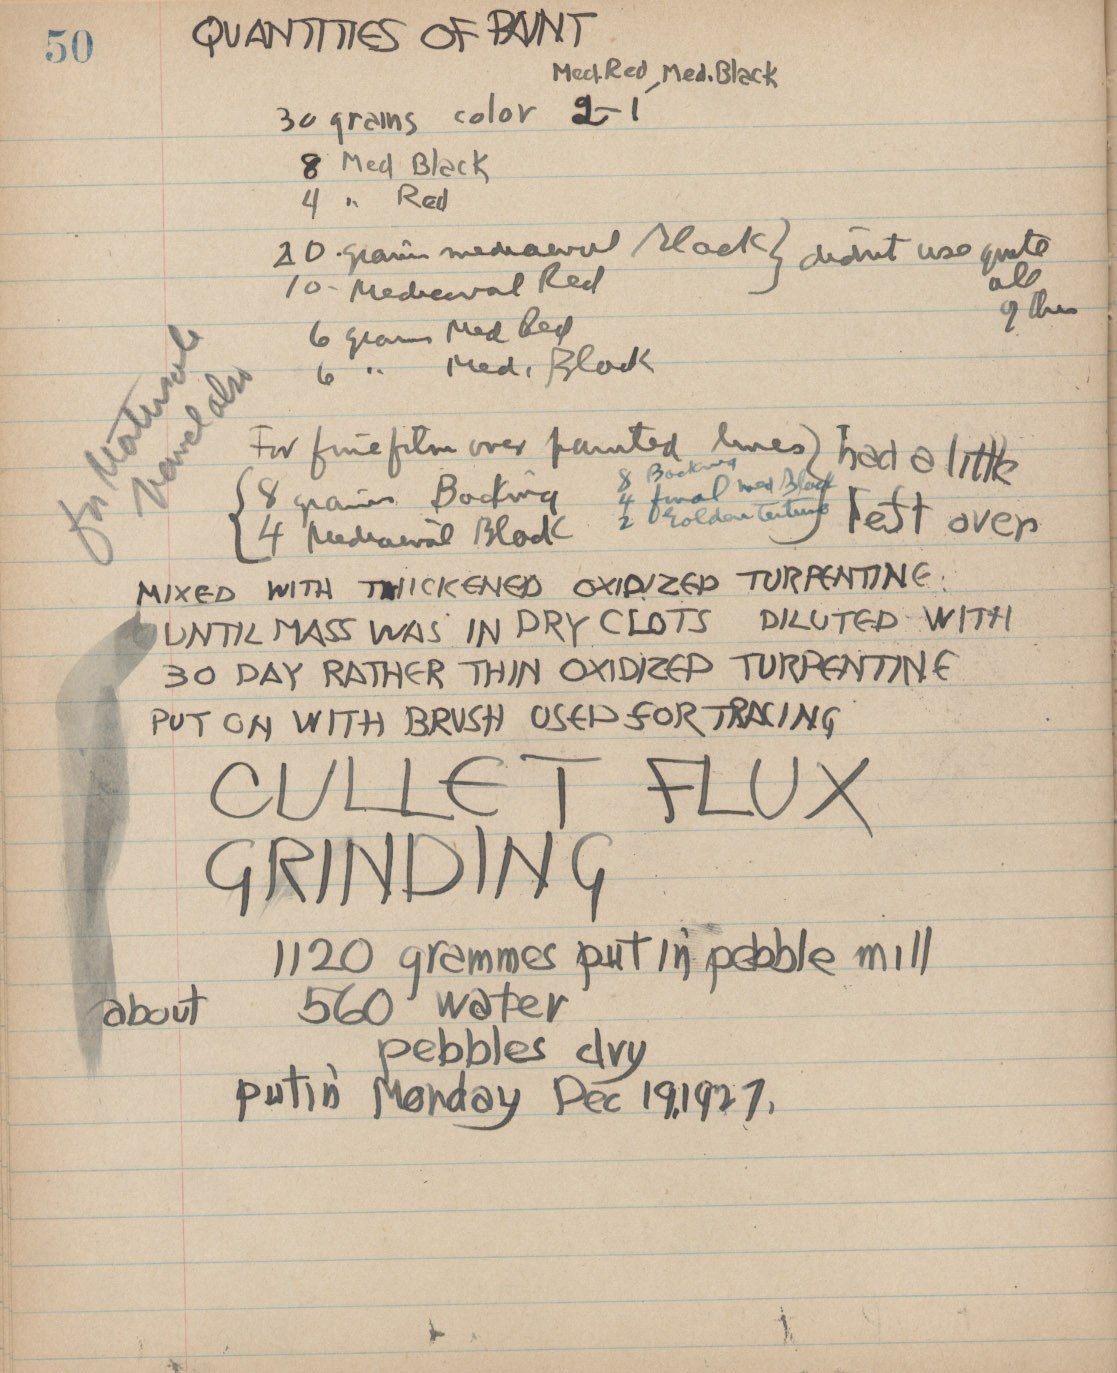 50
QUANTITIES OF PAINT
Med. Red, Med. Black
30 grains color 2-1
8 Med Black
4 " Red
20 grain mediaeval Black } didn't use quite
10 - Mediaeval Red all
of this
6 grains Med Red
6 " Med. Black
for
panel also
For fine film over painted lines } had a little
{ 8 grains Backing left over
4 Mediaeval Black
8 Backing
4 final Med Black
2 Golden
MIXED WITH THICKENED OXIDIZED TURPENTINE.
UNTIL MASS WAS IN DRY CLOTS DILUTED WITH
30 DAY RATHER THIN OXIDIZED TURPENTINE
PUT ON WITH BRUSH USED FOR TRACING
CULLET FLUX
GRINDING
1120 grammes put in pebble mill
about 560 water
pebbles dry
put in Monday Dec 19, 1927.